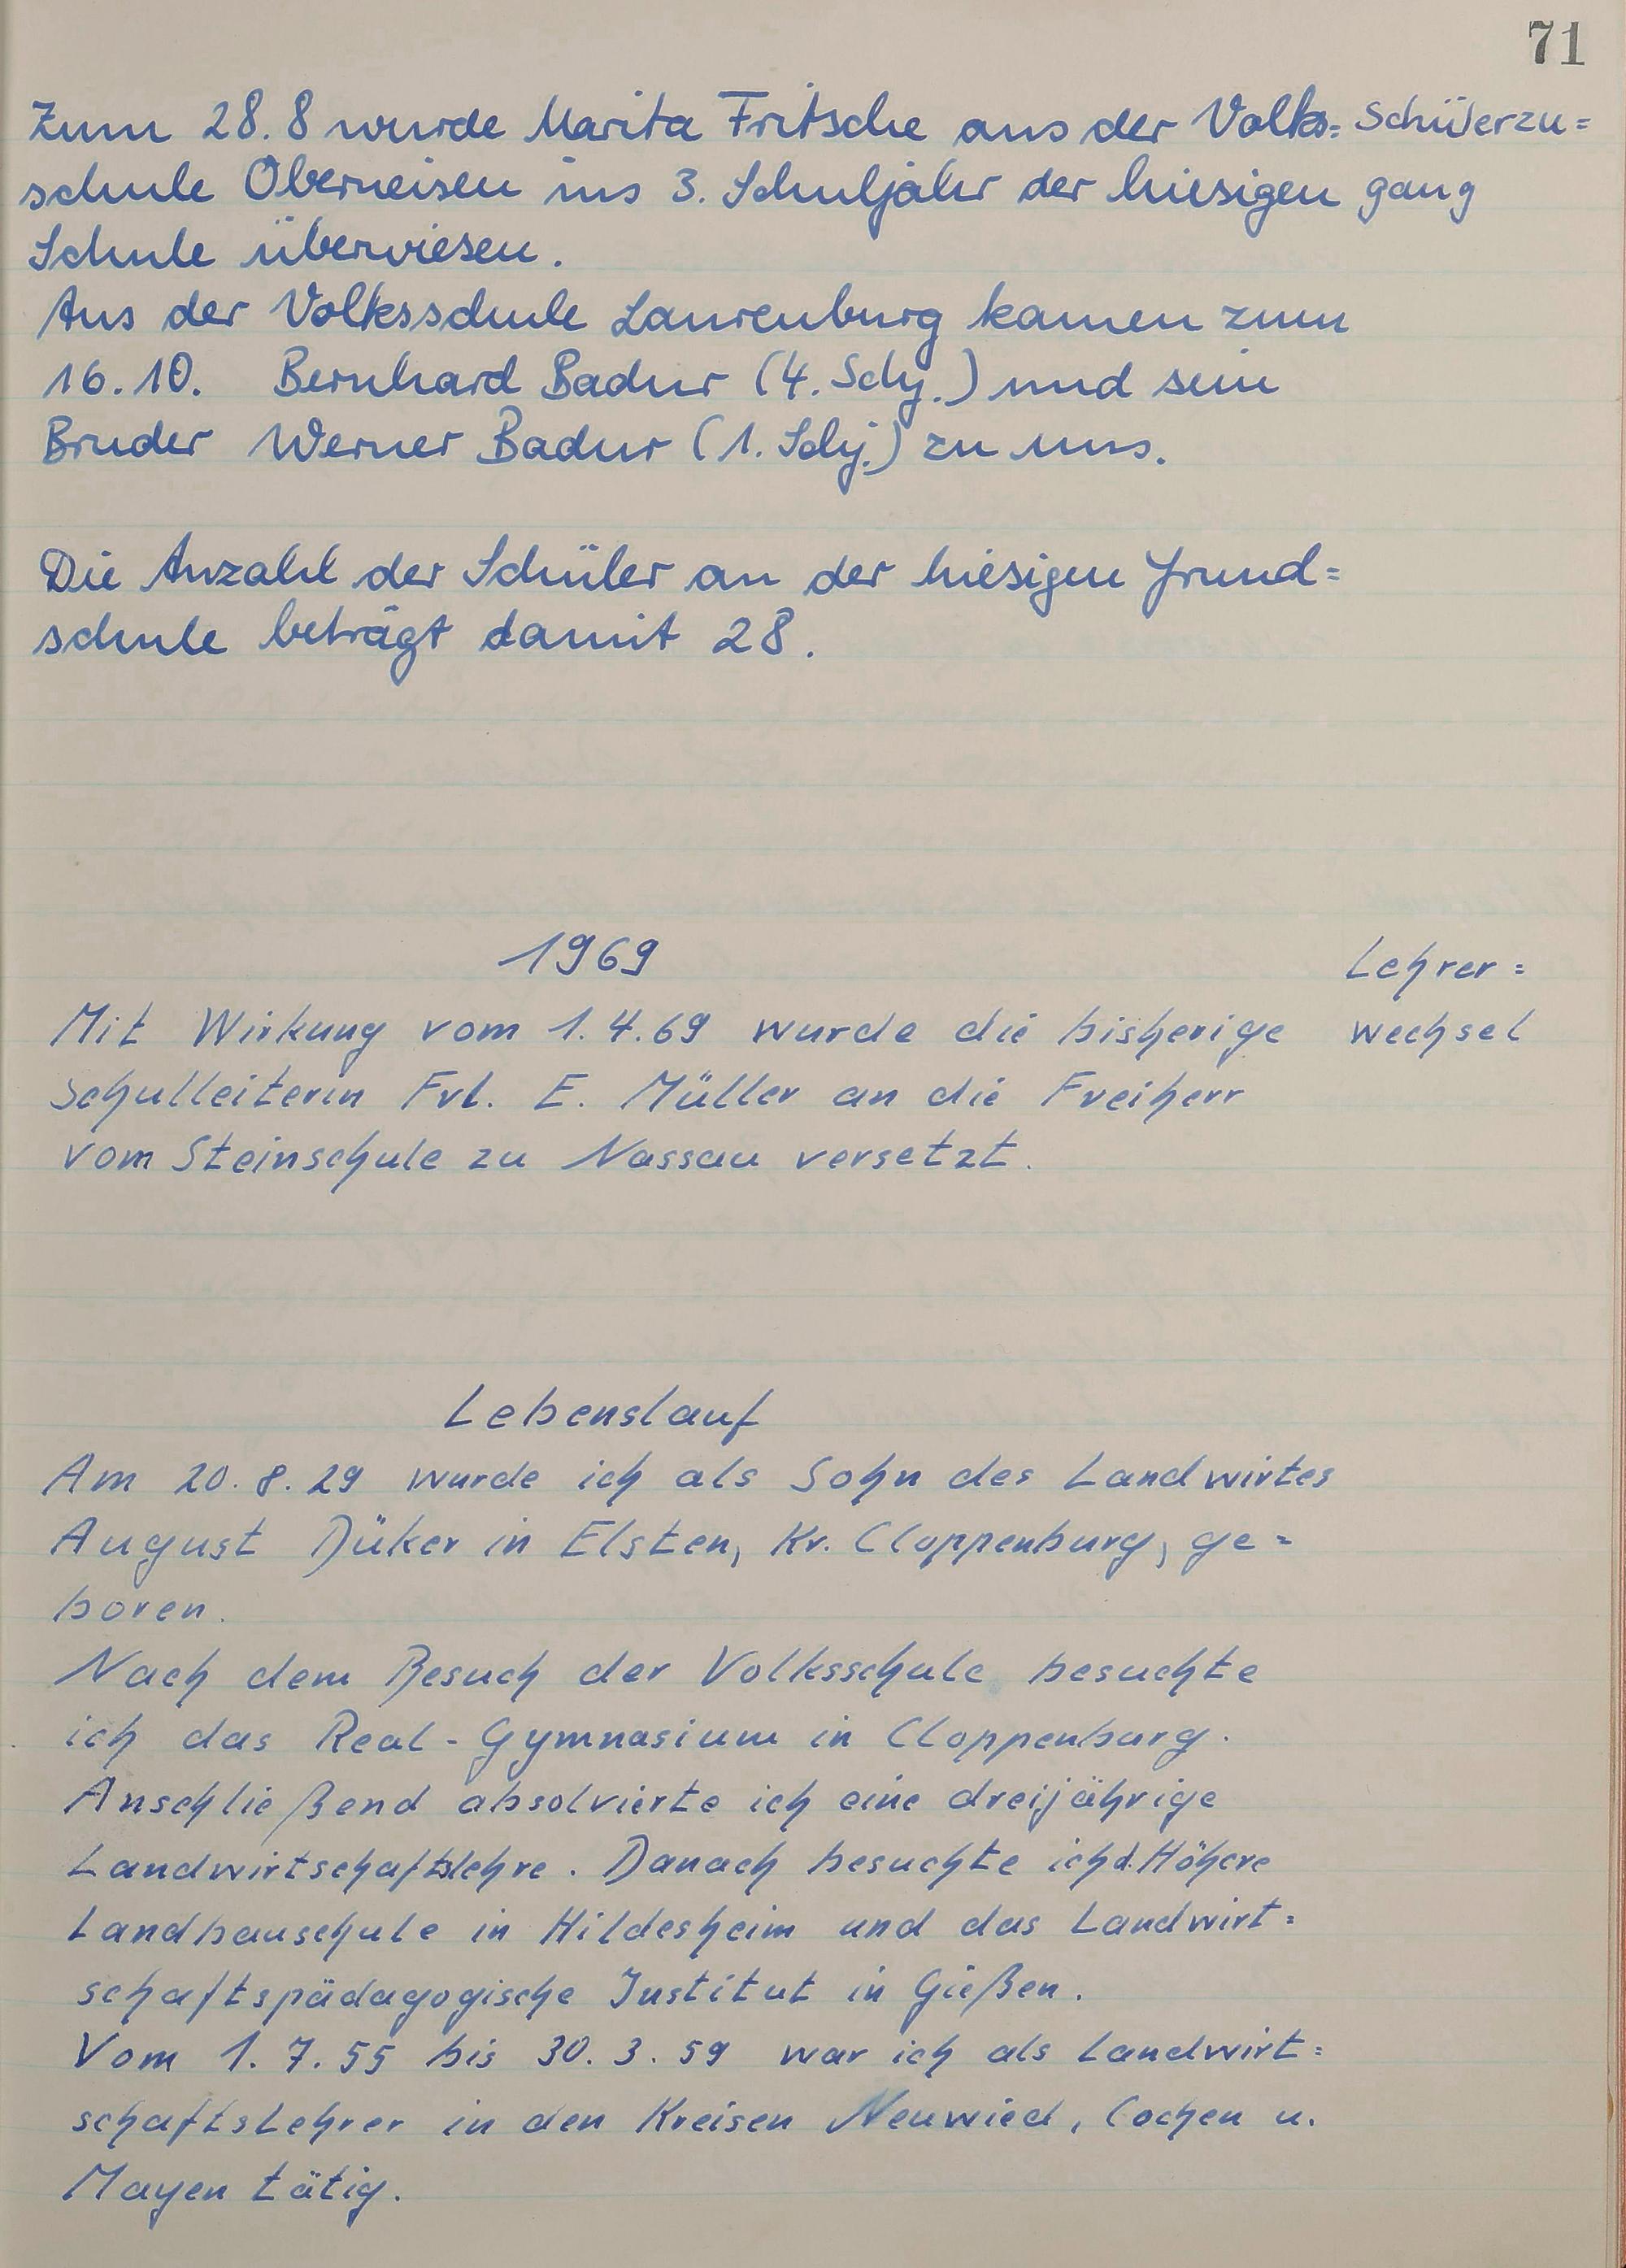 71
Zum 28.8 wurde Marita Fritsche aus der Volks= Schülerzu=
schule Oberneisen ins 3. Schuljahr der hiesigen gang
Schule überwiesen.
Aus der Volksschule Laurenburg kamen zum
16.10. Bernhard Badur (4. Schj.) und sein
Bruder Werner Badur (1. Schj.) zu uns.
Die Anzahl der Schüler an der hiesigen Grund=
schule beträgt damit 28.
1969 Lehrer=
Mit Wirkung vom 1.4.69 wurde die bisherige wechsel
Schulleiterin Frl. E. Müller an die Freiherr
vom Steinschule zu Nassau versetzt.
Lebenslauf
Am 20.8.29 wurde ich als Sohn des Landwirtes
August Düker in Elsten, Kr. Cloppenburg, ge=
boren.
Nach dem Besuch der Volksschule besuchte
ich das Real-Gymnasium in Cloppenburg.
Anschließend absolvierte ich eine dreijährige
Landwirtschaftslehre. Danach besuchte ich d. Höhere
Landbauschule in Hildesheim und das Landwirt=
schaftspädagogische Institut in Gießen.
Vom 1.7.55 bis 30.3.59 war ich als Landwirt=
schaftslehrer in den Kreisen Neuwied, Cochen u.
Mayen tätig.